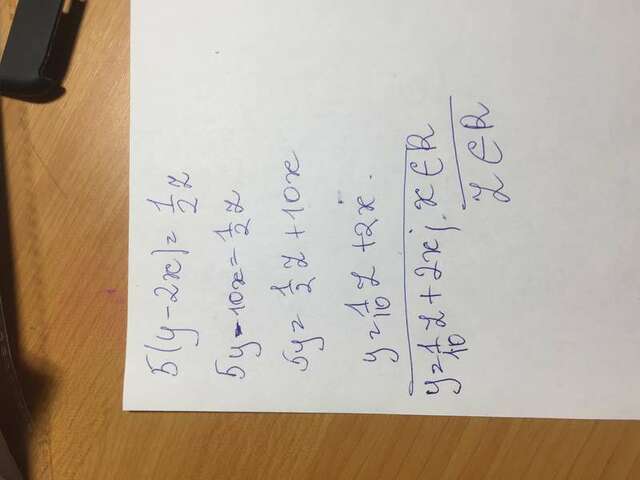 5(y-2x)=1/2 z
5y-10x=1/2 z
5y=1/2 z+10x
y=1/10 z+2x.
y=1/10 z+2x; x∈R
z∈R